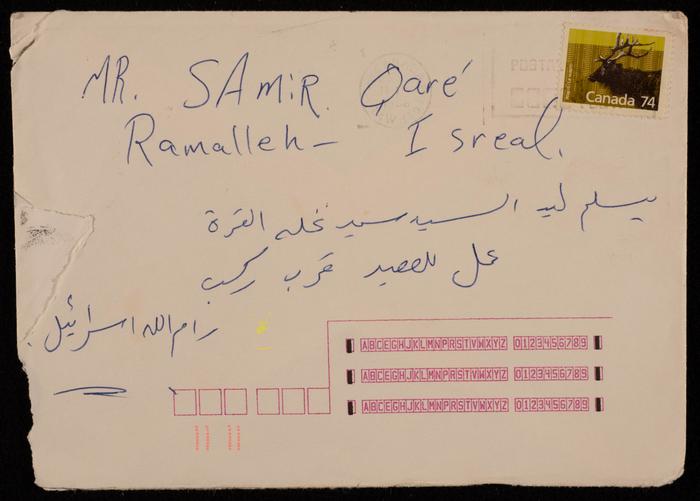 Canada 74
MR. SAmiR. Qaré
Ramalleh - Isreal.
يسلم ليد السيد سمير نخله القرة
محل للصيد قرب ركب
رام الله اسرائيل
ABCEGHJKLMNPRSTVWXYZ 0123456789
ABCEGHJKLMNPRSTVWXYZ 0123456789
ABCEGHJKLMNPRSTVWXYZ 0123456789